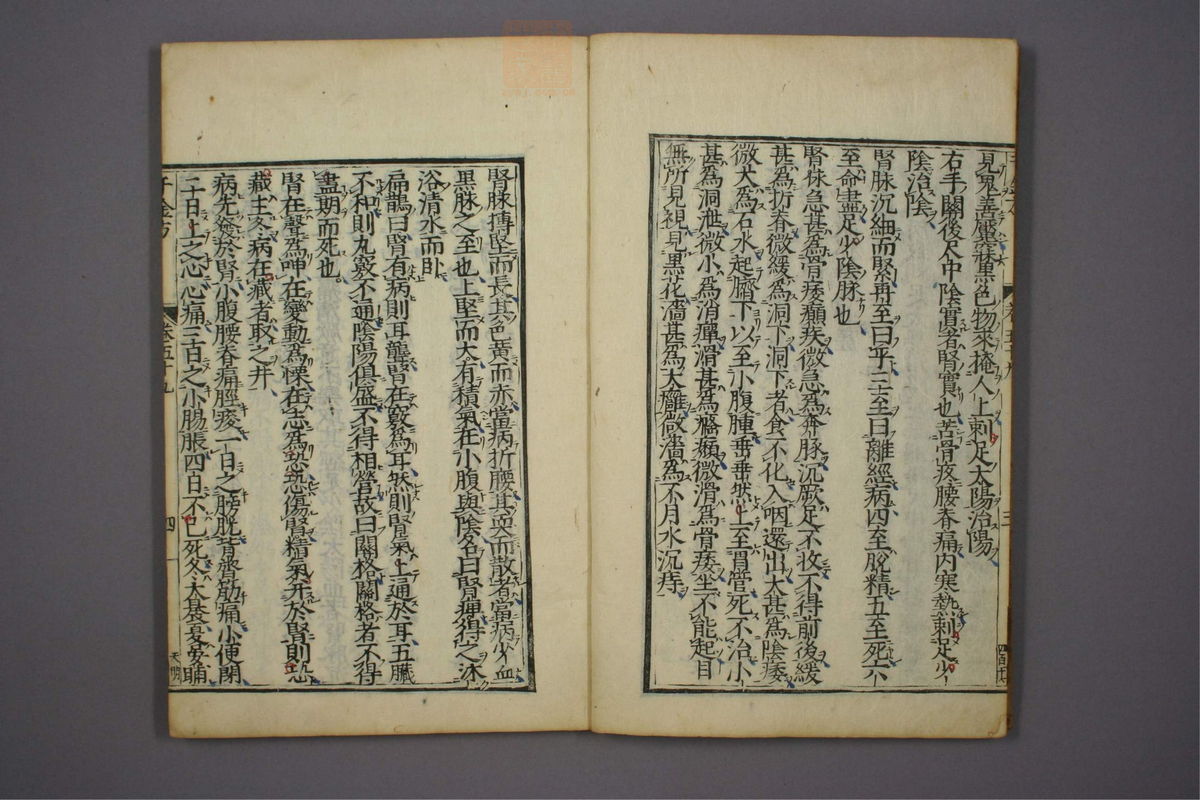 見鬼善魘寐黑色物來掩人上刺足太陽治陽
右手關後尺中陰實者腎實也苦骨疼腰脊痛內寒熱刺足少
陰治陰
腎脉沉細而緊再至曰平三至曰離經病四至脫精五至死六
至命盡足少陰脉也
腎脉急甚爲骨痿癲疾微急爲奔豚沉厥足不收不得前後緩
甚爲折脊微緩爲洞下洞下者食不化入咽還出大甚爲陰痿
微大爲石水起臍下以至小腹腫垂垂然上至胃管死不治小
甚爲洞泄微小爲消癉滑甚爲癃㿗微滑爲骨痿坐不能起目
無所見視見黑花濇甚爲大癰微濇爲不月水沉痔
腎脉搏堅而長其色黃而赤當病折腰其耎而散者當病少血
黑脉之至也上堅而大有積氣在小腹與陰名曰腎痺得之沐
浴清水而卧
扁鵲曰腎有病則耳聾腎在竅爲耳然則腎氣上通於耳五臟
不和則九竅不通陰陽俱盛不得相營故曰關格關格者不得
盡期而死也
腎在聲爲呻在變動爲慄在志爲恐恐傷腎精氣并於腎則恐
藏主冬病在藏者取之井
病先發於腎小腹腰脊痛脛痠一日之膀胱背膂筋痛小便閉
二日上之心心痛三日之小腸脹四日不已死冬大晨夏晏晡
千金方
卷五十九
四
天明